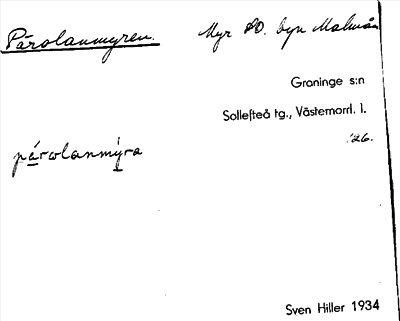 Pårolanmyren. Myr SO. byn Malmån
Graninge s:n
Sollefteå tg., Västernorrl. l.
'26.
pårolanmýra
Sven Hiller 1934